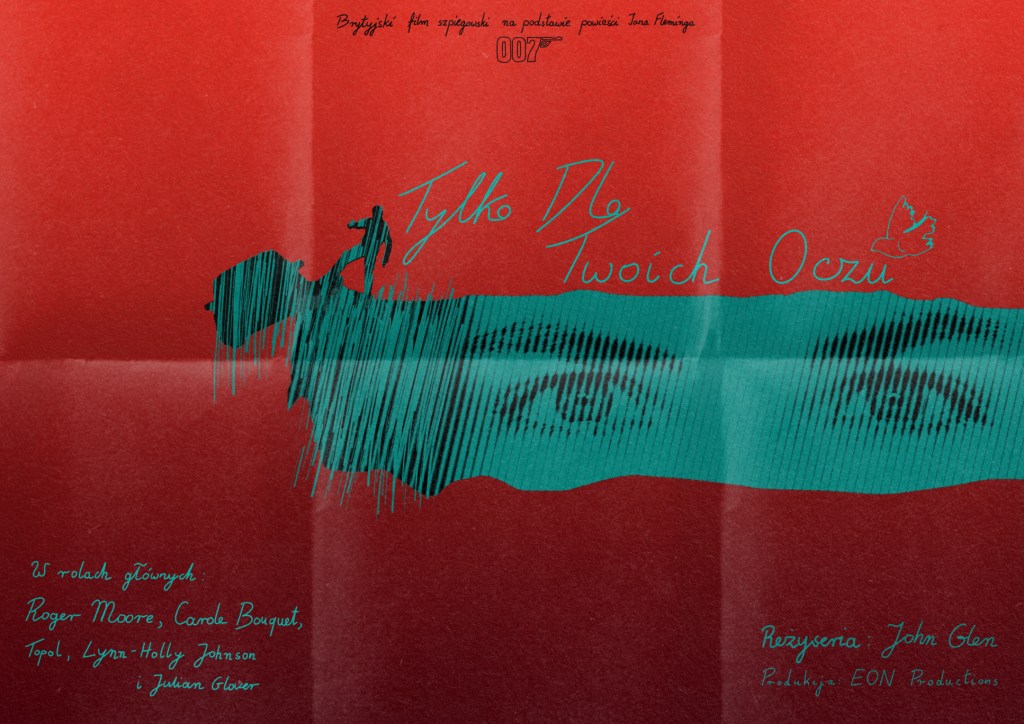 Brytyjski film szpiegowski na podstawie powieści Iana Fleminga
007
Tylko Dla
Twoich Oczu
W rolach głównych:
Roger Moore, Carole Bouquet,
Topol, Lynn-Holly Johnson
i Julian Glover
Reżyseria: John Glen
Produkcja: EON Productions